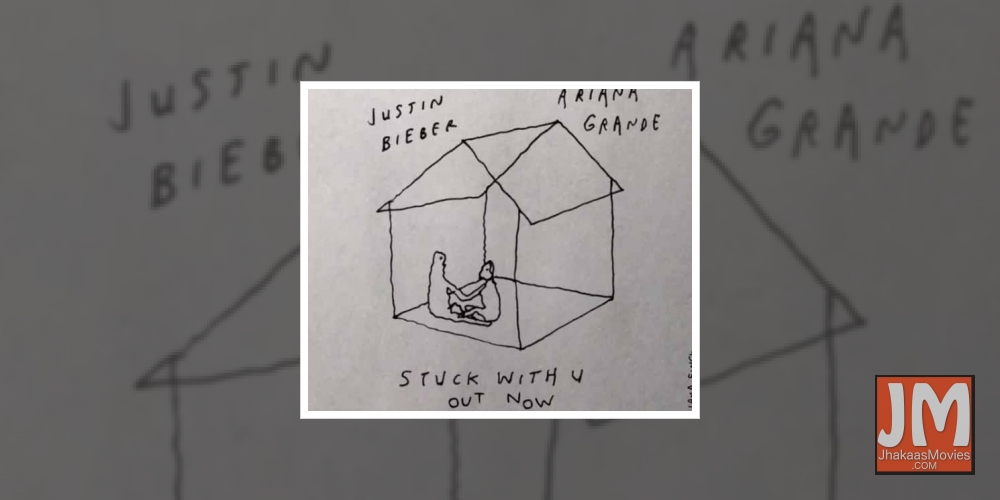 JUSTIN
BIEBER
ARIANA
GRANDE
STUCK WITH U
OUT NOW
JUSTIN
BIEB
ARIANA
GRANDE
JM
JhakaasMovies
.COM